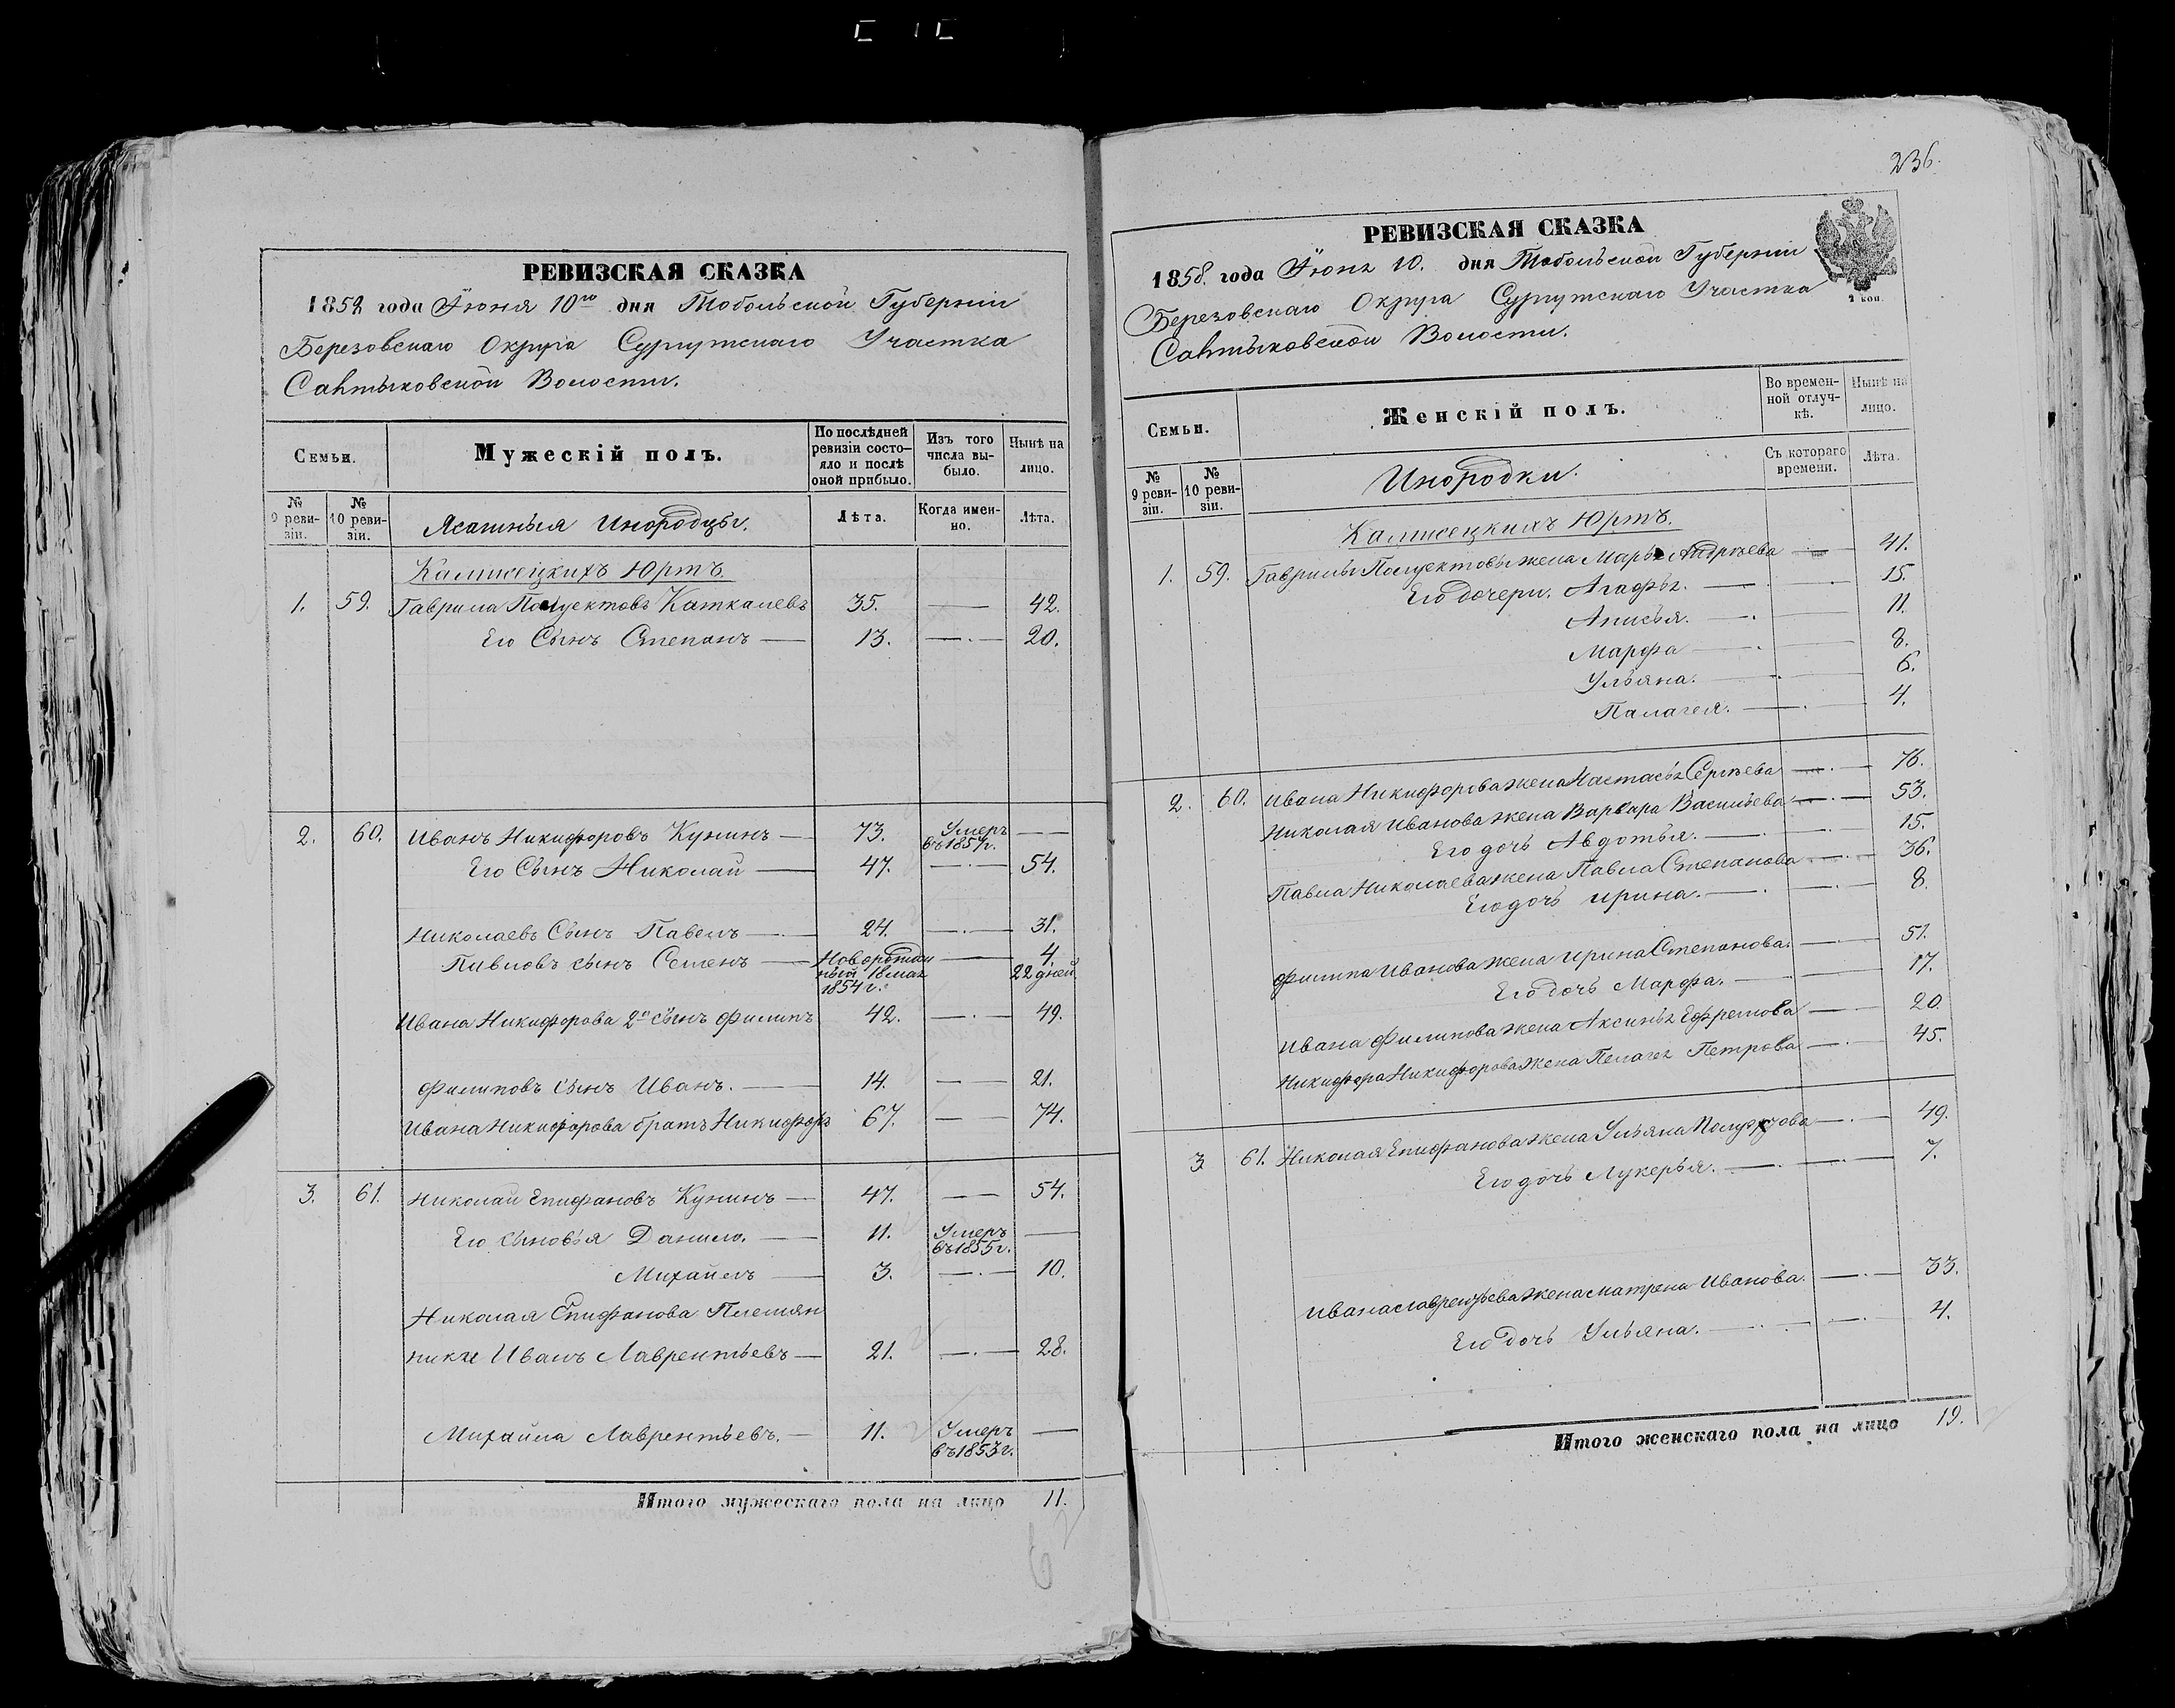 РЕВИЗСКАЯ СКАЗКА
1858 года Іюня 10го дня Тобольской Губерніи
Березовскаго Округа Сургутскаго Участка
Салтыковской Волости.
Семьи.
Мужескій полъ.
По послѣдней ревизіи состояло и послѣ оной прибыло.
Изъ того числа выбыло.
Нынѣ на лицо.
№ 9 ревизіи.
№ 10 ревизіи.
Ясашныя Инородцы.
Лѣта.
Когда именно.
Лѣта.
Юртъ.
1. 59. Гаврила Полуектовъ Каткалевъ 35. — 42.
Его Сынъ Степанъ — 13. — 20.
2. 60. Иванъ Никифоровъ Кунинъ — 73. Умеръ въ 1857г. —
Его Сынъ Николай — 47. — 54.
Николаевъ Сынъ Павелъ — 24. — 31.
Павловъ сынъ Семенъ — Новорожденный 18 мая 1854 г. — 4. 22 дней
Ивана Никифорова 2й сынъ Филипъ 42. — 49.
Филиповъ сынъ Иванъ. — 14. — 21.
Ивана Никифорова братъ Никифоръ 67. — 74.
3. 61. Николай Епифановъ Кунинъ — 47. — 54.
Его сыновья Данило. — 11. Умеръ въ 1855г. —
Михайлъ — 3. — 10.
Николая Епифанова Племян
ники Иванъ Лаврентьевъ — 21. — 28.
Михайла Лаврентьевъ. — 11. Умеръ въ 1853г. —
Итого мужескаго пола на лицо 11.
236.
РЕВИЗСКАЯ СКАЗКА
1858. года Іюня 10. дня Тобольской Губерніи
Березовскаго Округа Сургутскаго Участка
Салтыковской Волости.
2 коп.
Семьи.
Женскій полъ.
Во временной отлучкѣ.
Нынѣ на лицо.
№ 9 ревизіи.
№ 10 ревизіи.
Инородки.
Съ котораго времени.
Лѣта.
Юртъ.
1. 59. Гаврилы Полуектовы жена Марья Андреева — 41.
Его дочери. Агафья. — 15.
Анисья. — 11.
Марфа — 8.
Ульяна. — 6.
Палагея. — 4.
2. 60. Ивана Никифорова жена Настасья Сергѣева — 76.
Николая Иванова жена Варвара Васильева — 53.
Его дочь Авдотья. — 15.
Павла Николаева жена Павла Степанова — 36.
Его дочь Ирина. — 8.
Филипа Иванова жена Ирина Степанова. — 51.
Его дочь Марфа. — 17.
Ивана Филипова жена Аксинья Ефремова — 20.
Никифора Никифорова жена Пелагея Петрова — 45.
3 61. Николая Епифанова жена Ульяна — 49.
Его дочь Лукерья. — 7.
Ивана Лаврентьева жена Матрена Иванова. — 33.
Его дочь Ульяна. — 4.
Итого женскаго пола на лицо 19.